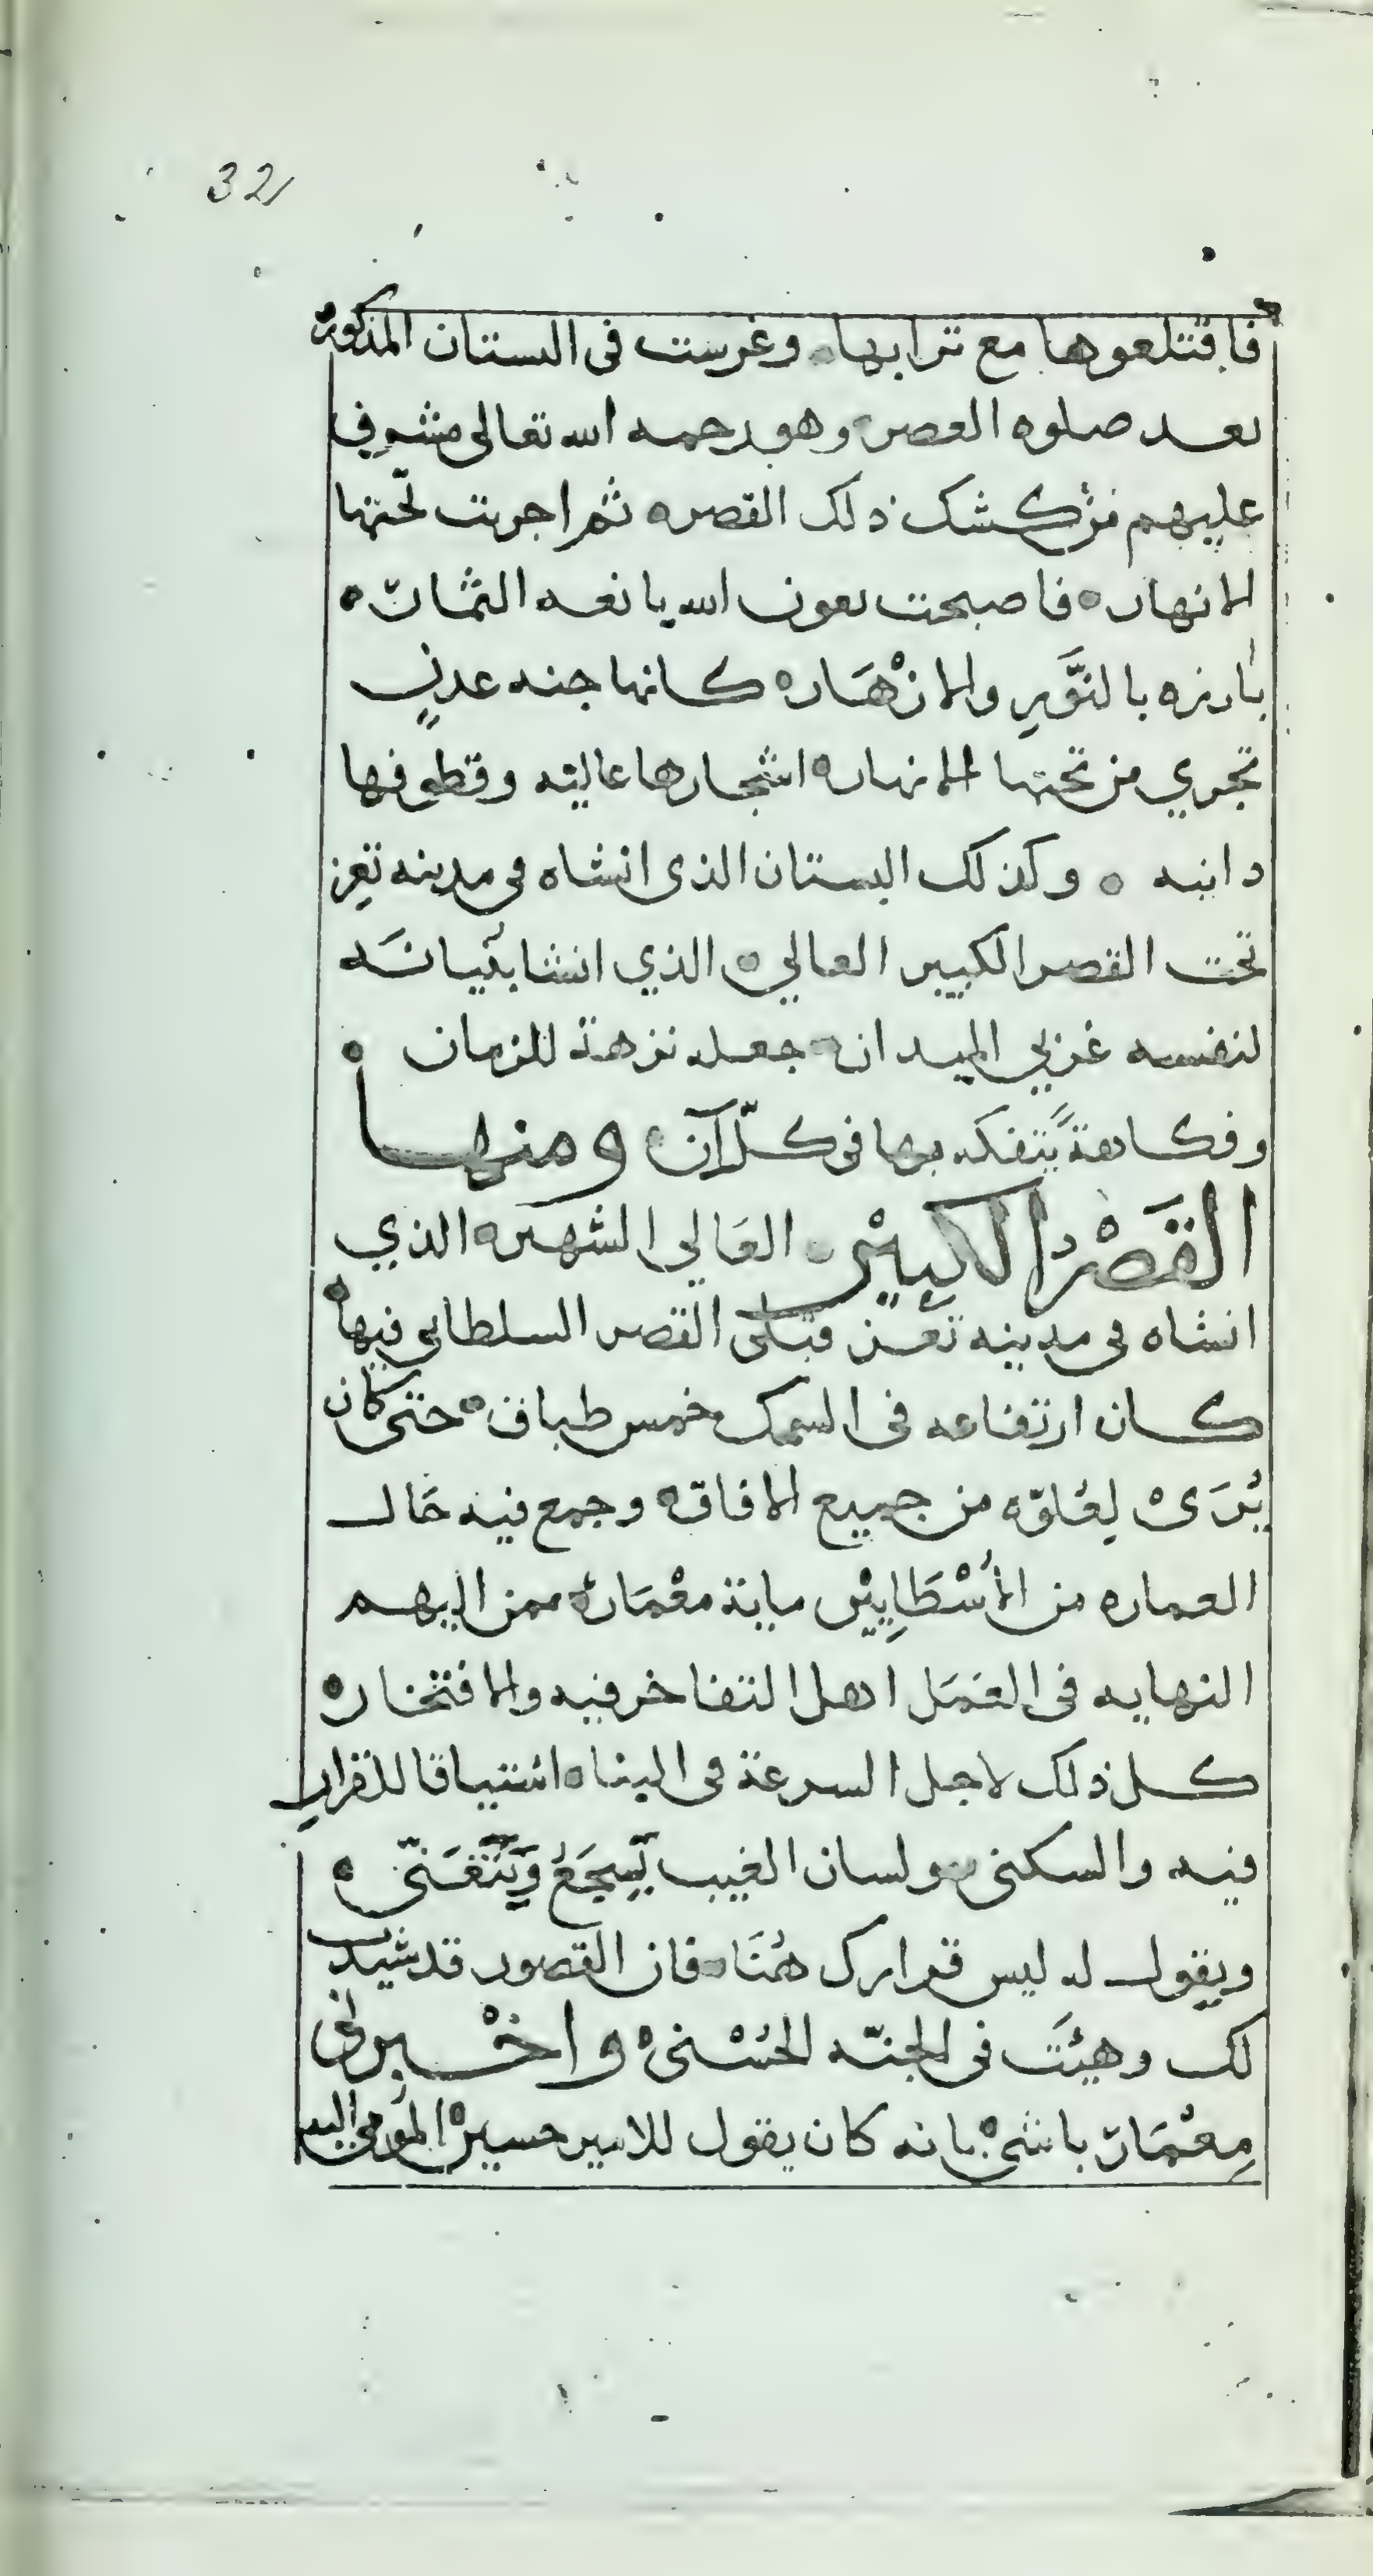 32
فاقتلعوها مع ترابها ٥ وغرست فى البستان المذكور
بعد صلوه العصر ٥ وهو رحمه الله تعالى مشرف
عليهم من كشك ذلك القصر ٥ ثم اجريت تحتها
الانهار ٥ فاصبحت بعون الله يانعه الثمار ٥
بارزه بالنَّوَرِ والازْهَار ٥ كانها جنه عدنٍ
تجري من تحتها الانهار ٥ اشجارها عاليه وقطوفها
دانيه ٥ وكذلك البستان الذى انشاه فى مدينه تعز
تحت القصر الكبير العالي ٥ الذي انشا بُنيانَه
لنفسه غربي الميدان ٥ جعله نزهة للزمان ٥
وفكاهةً يتفكه بها فى كلّ آن ٥ ومنها
القَصْرُ الكبيْر ٥ العَالي الشهير ٥ الذي
انشاه فى مدينه تَعَز قبلى القصر السلطانى فيها ٥
كان ارتفاعه فى السمك خمس طباق ٥ حتى كان
يُرَىْ لِعُلوّه من جميع الافاق ٥ وجمع فيه حَال
العماره من الأسْطَايِيْن ماية معْمَار ٥ ممن اليهم
النهايه فى العَمَل اهل التفاخر فيه والافتخار ٥
كل ذلك لاجل السرعة فى البناء ٥ اشتياقا للقرارِ
فيه والسكنى ٥ ولسان الغيب يَسجَعُ وَيَتَغَنّى ٥
ويقول له ليس قرارك هُنَا ٥ فان القصور قد شيدت
لك وهيئَت فى الجنّه الحُسْنىْ ٥ واخْبرنى
مِعْمَار باشىْ بانه كان يقول للامير حسيْن المومى اليه